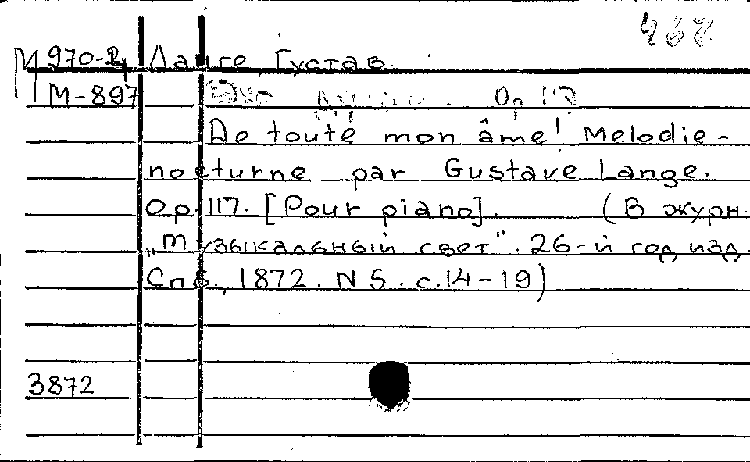 467
М 970-2 Ланге, Густав.
М-897 Op 117
De toute mon âme! Melodie-
nocturne par Gustave Lange.
Op. 117. [Pour piano]. (В журн.
„Музыкальный свет". 26-й год изд.
Спб., 1872. N 5. с. 14-19)
3872